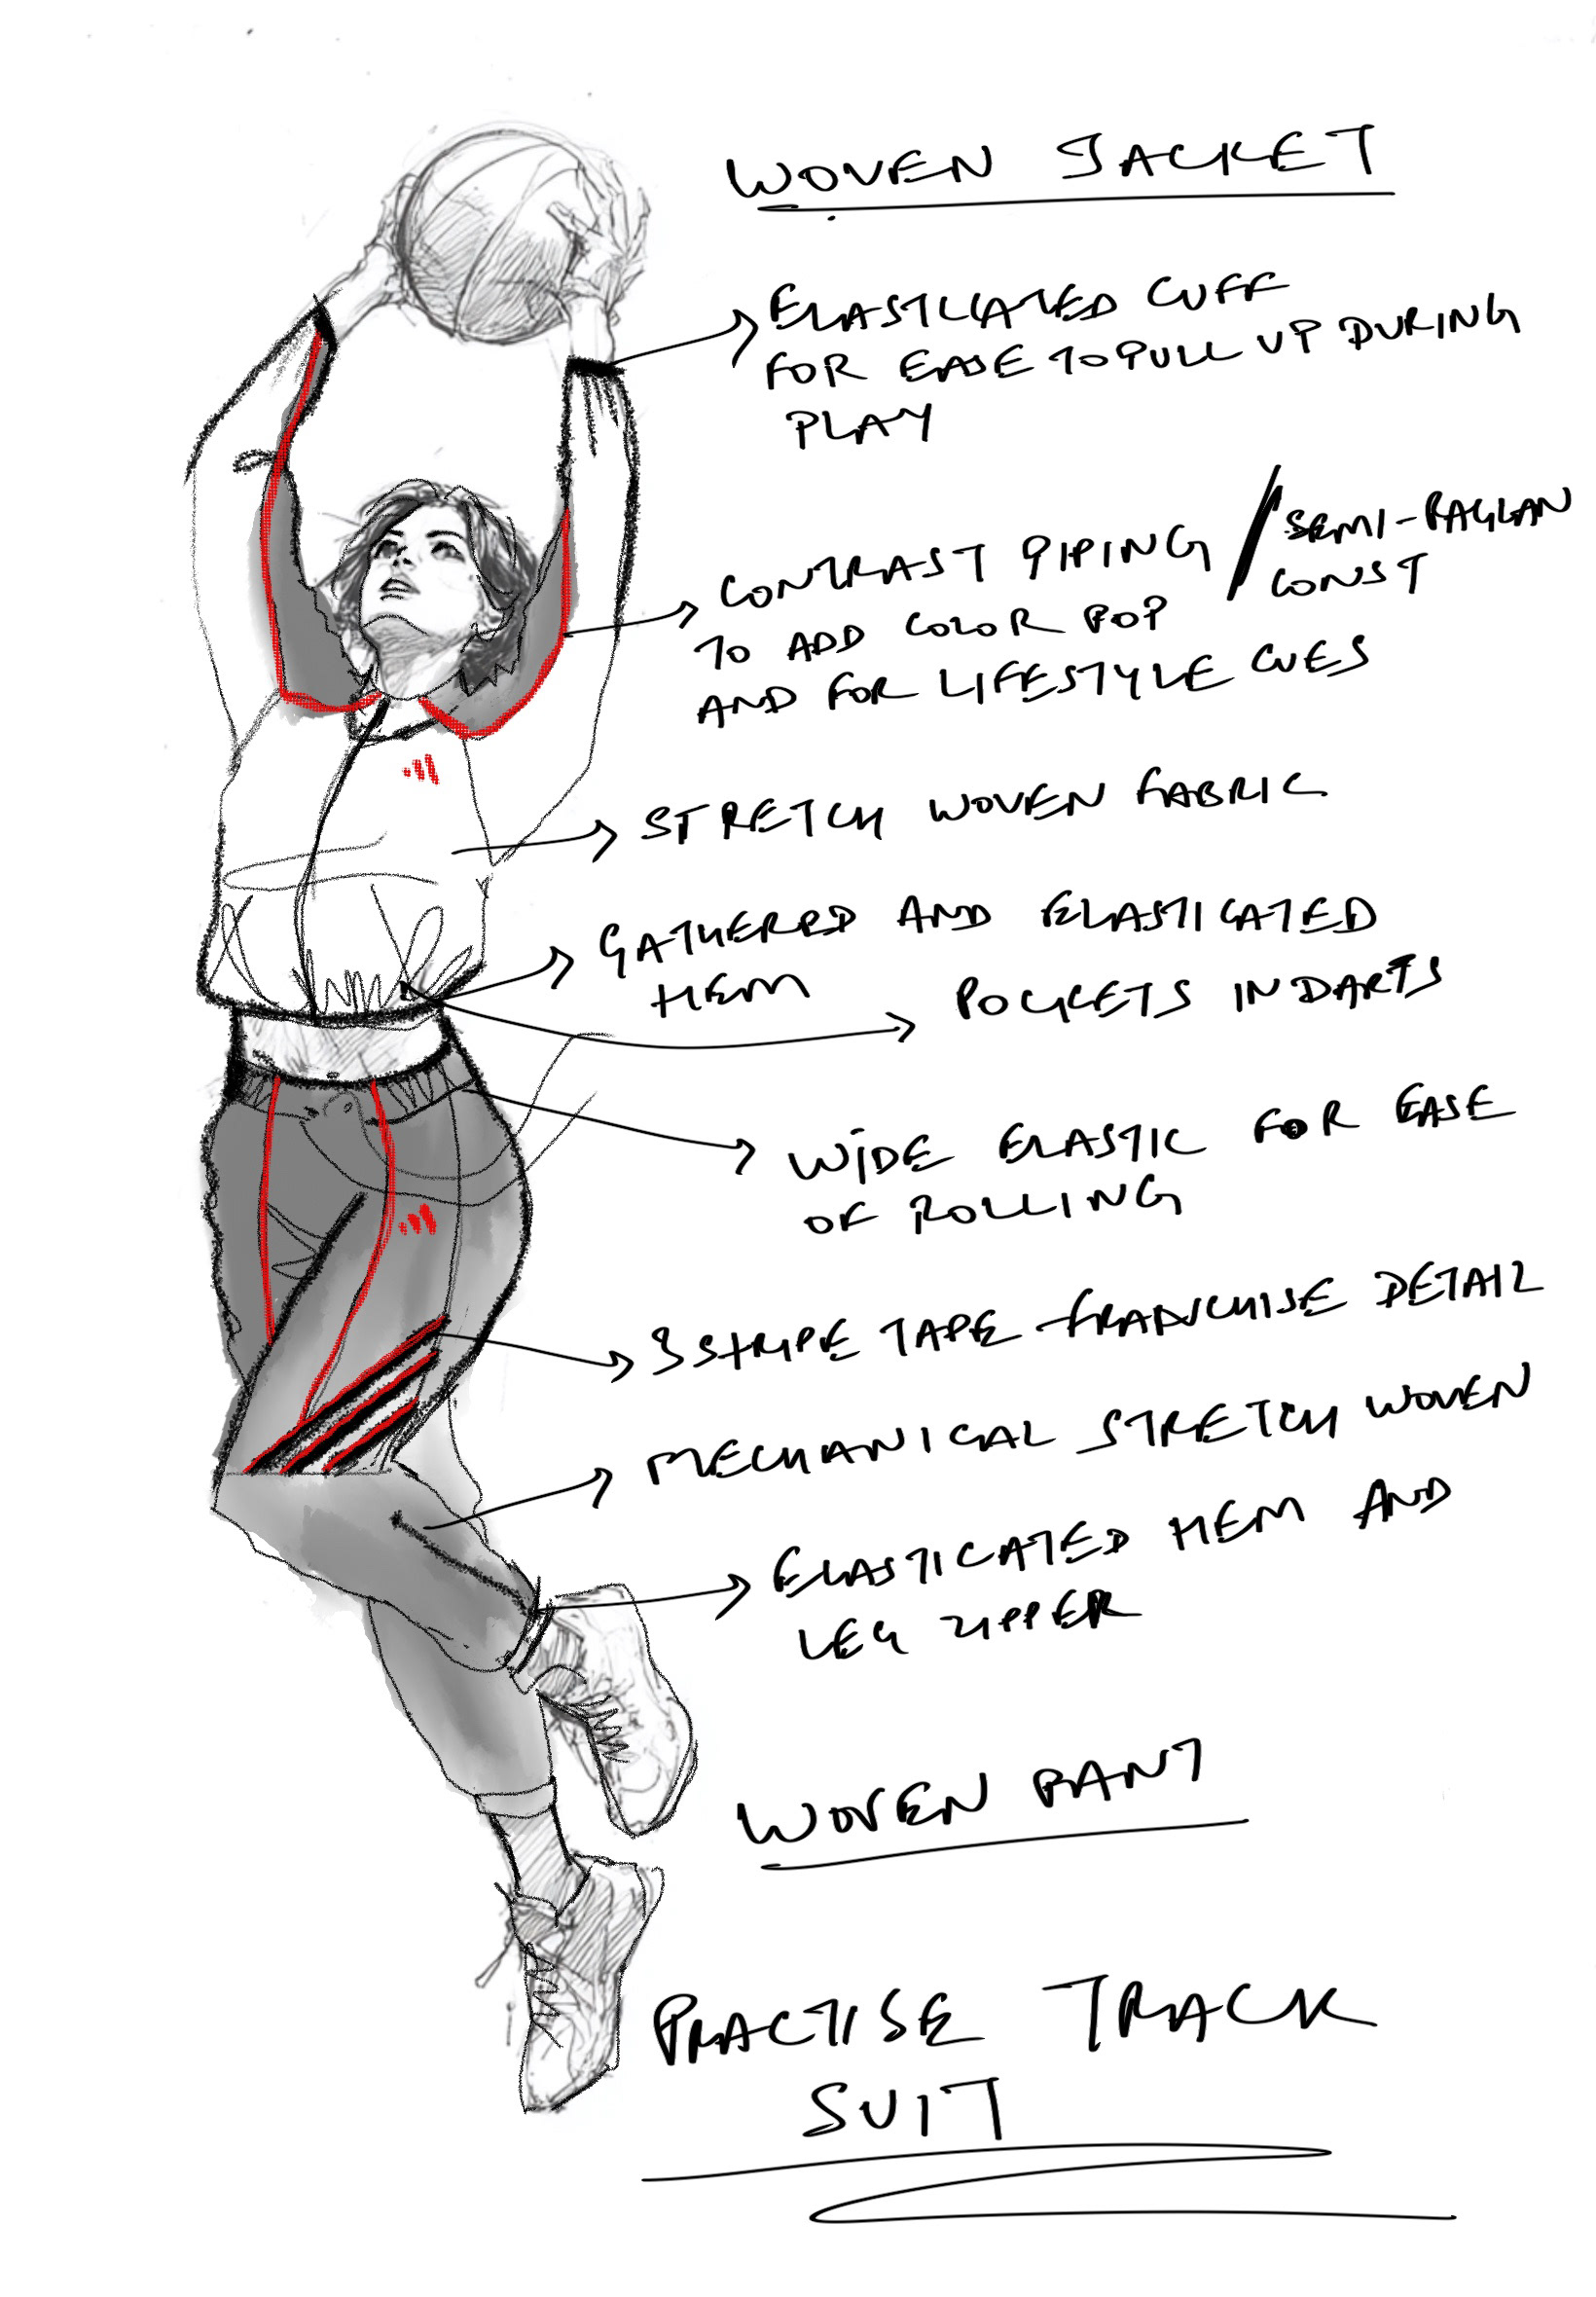 WOVEN JACKET
ELASTICATED CUFF
FOR EASE TO PULL UP DURING
PLAY
CONTRAST PIPING / SEMI-RAGLAN
CONST
TO ADD COLOR POP
AND FOR LIFESTYLE CUES
STRETCH WOVEN FABRIC
GATHERED AND ELASTICATED
HEM
POCKETS IN DARTS
WIDE ELASTIC FOR EASE
OF ROLLING
3 STRIPE TAPE - FRANCHISE DETAIL
MECHANICAL STRETCH WOVEN
ELASTICATED HEM AND
LEG ZIPPER
WOVEN PANT
PRACTISE TRACK
SUIT